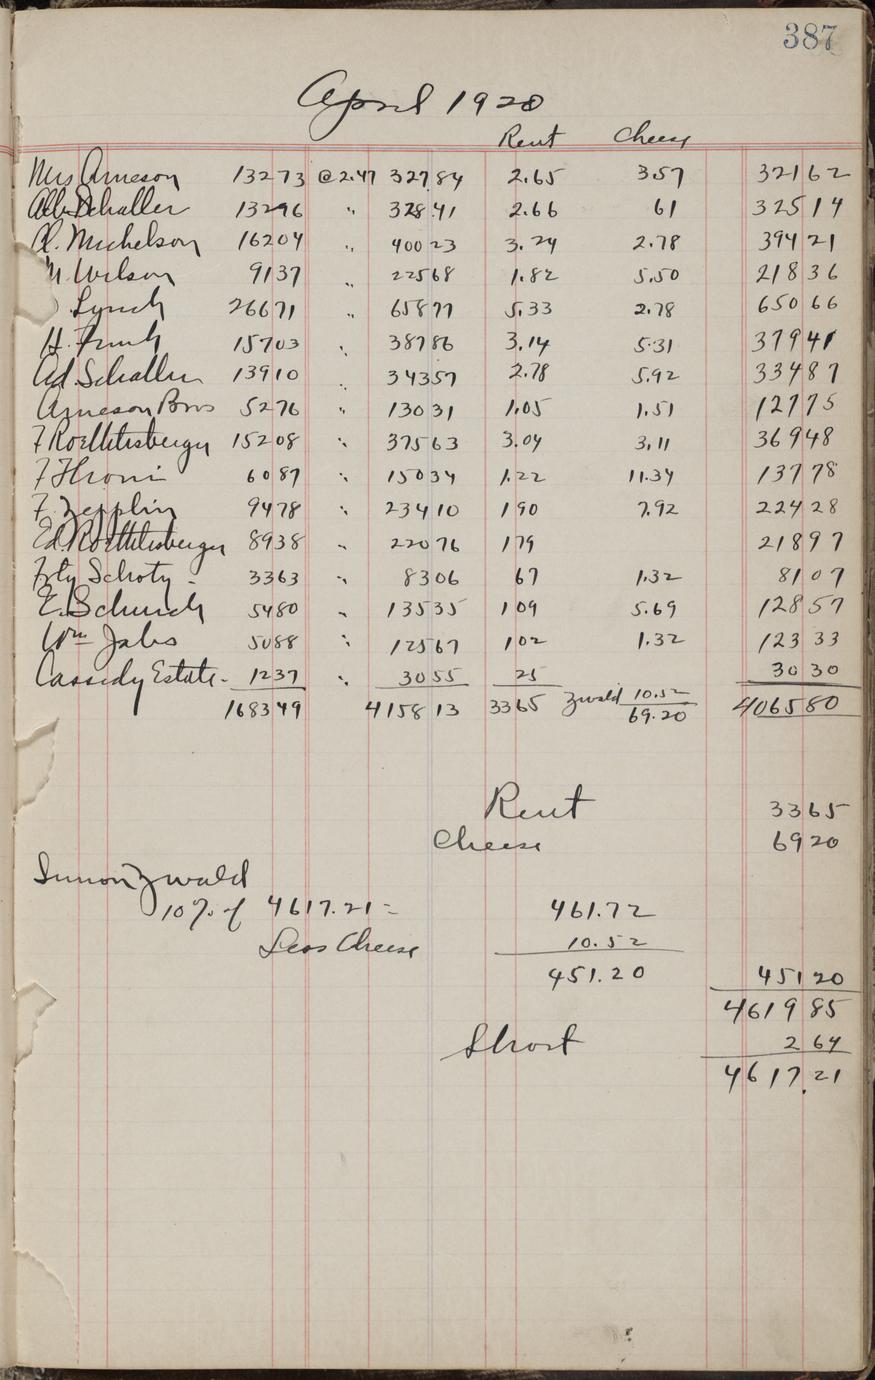 387
April 1920
Rent Cheese
Mrs Arneson 13273 @2.47 327 84 2.65 3.57 321 62
Alb Schaller 13296 " 328 41 2.66 61 325 14
A. Michelson 16204 " 400 23 3.24 2.78 394 21
M. Wilson 9137 " 225 68 1.82 5.50 218 36
Lynch 26671 " 658 77 5.33 2.78 650 66
H. Funk 15703 " 387 86 3.14 5.31 379 41
Ad. Schaller 13910 " 343 57 2.78 5.92 334 87
Arneson Bros 5276 " 130 31 1.05 1.51 127 75
F Roethlisberger 15208 " 375 63 3.04 3.11 369 48
F Throni 6087 " 150 34 1.22 11.34 137 78
F. Zepplin 9478 " 234 10 1 90 7.92 224 28
Ed Roethlisberger 8938 " 220 76 1 79 218 97
Schoty - 3363 " 83 06 67 1.32 81 07
E. Schurch 5480 " 135 35 1 09 5.69 128 57
Wm Jabs 5088 " 125 67 1 02 1.32 123 33
Cassidy Estate - 1237 " 30 55 25 30 30
Zwald 10.52
168349 4158 13 33 65 69.20 4065 80
Rent 33 65
Cheese 69 20
Simon Zwald
10% of 4617.21 = 461.72
Less Cheese 10.52
451.20 451 20
4619 85
Short 2 64
4617.21